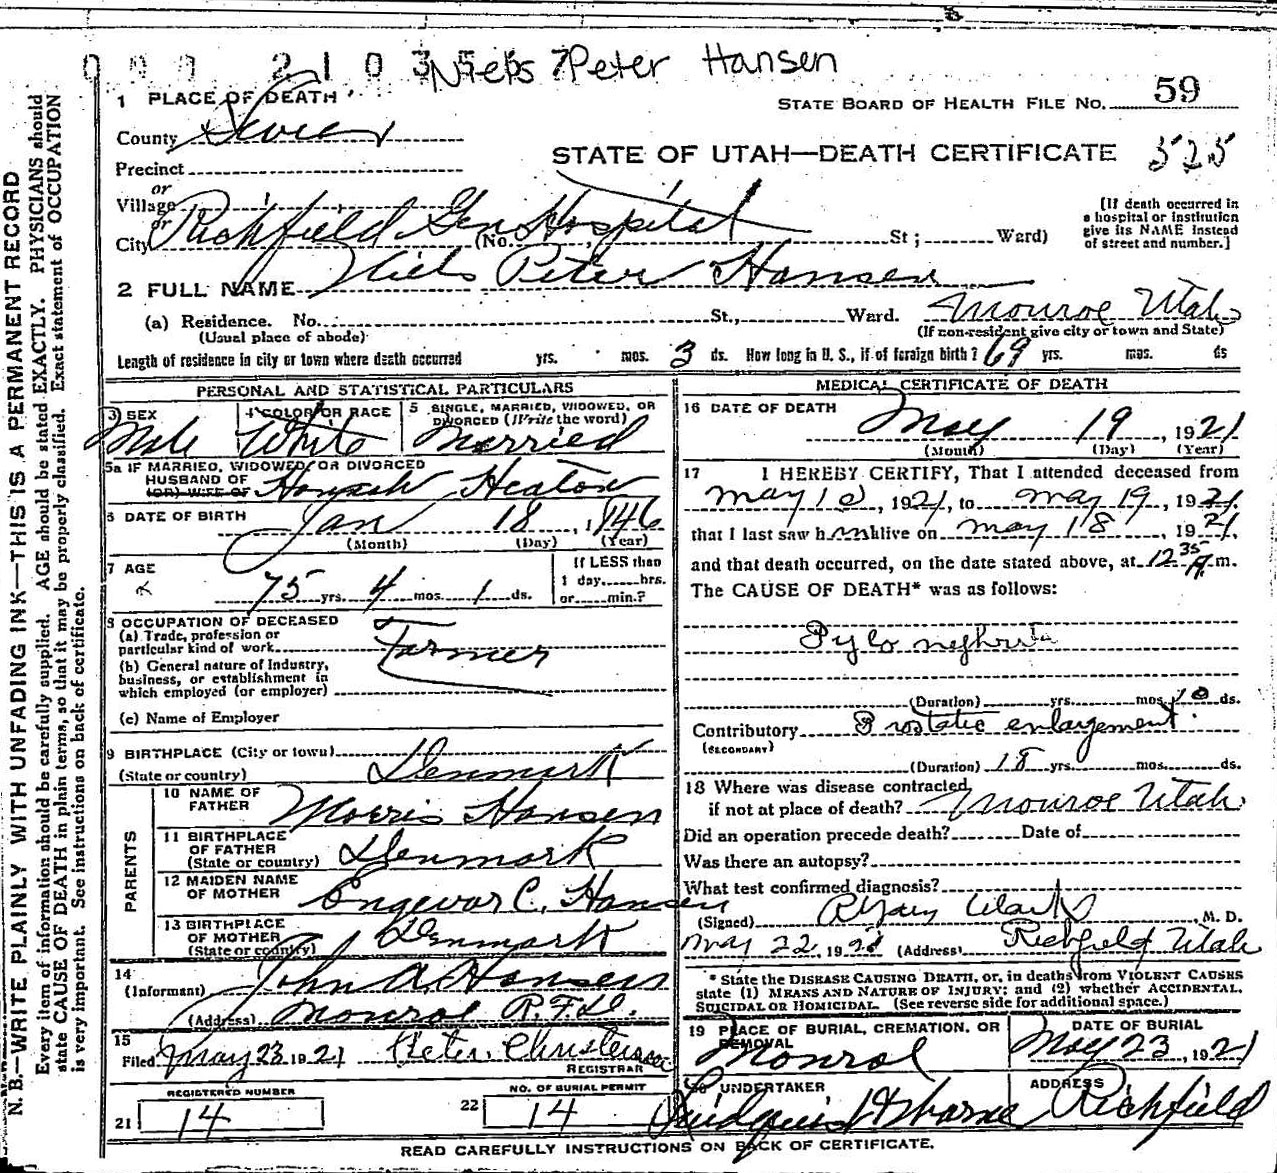 Niels Peter Hansen
1 PLACE OF DEATH
STATE BOARD OF HEALTH FILE No. 59
County Sevier
STATE OF UTAH—DEATH CERTIFICATE 525
Precinct
or
Village
or
City Richfield Gen Hospital (No. St; Ward)
[If death occurred in
a hospital or institution
give its NAME instead
of street and number.]
2 FULL NAME Niels Peter Hansen
(a) Residence. No. St., Ward. Monroe Utah
(Usual place of abode) (If non-resident give city or town and State)
Length of residence in city or town where death occurred yrs. mos. 3 ds. How long in U. S., if of foreign birth? 69 yrs. mos. ds
PERSONAL AND STATISTICAL PARTICULARS
3 SEX Male
4 COLOR OR RACE White
5 SINGLE, MARRIED, WIDOWED, OR
DIVORCED (Write the word)
Married
5a IF MARRIED, WIDOWED, OR DIVORCED
HUSBAND OF
(OR) WIFE OF Hannah Heaton
6 DATE OF BIRTH Jan 18, 1846
(Month) (Day) (Year)
7 AGE
75 yrs. 4 mos. 1 ds.
If LESS than
1 day......hrs.
or......min.?
8 OCCUPATION OF DECEASED
(a) Trade, profession or
particular kind of work Farmer
(b) General nature of Industry,
business, or establishment in
which employed (or employer)
(c) Name of Employer
9 BIRTHPLACE (City or town)
(State or country) Denmark
PARENTS
10 NAME OF
FATHER Morris Hansen
11 BIRTHPLACE
OF FATHER
(State or country) Denmark
12 MAIDEN NAME
OF MOTHER Engevor C. Hansen
13 BIRTHPLACE
OF MOTHER
(State or country) Denmark
14
(Informant) John A. Hansen
(Address) Monroe R.F.D.
15
Filed May 23 1921 Peter Christensen
REGISTRAR
REGISTERED NUMBER
21 14
NO. OF BURIAL PERMIT
22 14
MEDICAL CERTIFICATE OF DEATH
16 DATE OF DEATH
May 19, 1921
(Month) (Day) (Year)
17 I HEREBY CERTIFY, That I attended deceased from
May 10, 1921, to May 19, 1921.
that I last saw him alive on May 18, 1921.
and that death occurred, on the date stated above, at 12 35 A.m.
The CAUSE OF DEATH* was as follows:
Pylo nephritis
(Duration) yrs. mos. 10 ds.
Contributory Prostatic enlargement.
(SECONDARY)
(Duration) 18 yrs. mos. ds.
18 Where was disease contracted
if not at place of death? Monroe Utah
Did an operation precede death? Date of
Was there an autopsy?
What test confirmed diagnosis?
(Signed) M. D.
May 22, 1921 (Address) Richfield Utah
* State the DISEASE CAUSING DEATH, or, in deaths from VIOLENT CAUSES
state (1) MEANS AND NATURE OF INJURY; and (2) whether ACCIDENTAL,
SUICIDAL OR HOMICIDAL. (See reverse side for additional space.)
19 PLACE OF BURIAL, CREMATION, OR
REMOVAL
Monroe
DATE OF BURIAL
May 23, 1921
20 UNDERTAKER
ADDRESS
Richfield
READ CAREFULLY INSTRUCTIONS ON BACK OF CERTIFICATE.
N. B.—WRITE PLAINLY WITH UNFADING INK—THIS IS A PERMANENT RECORD
Every item of information should be carefully supplied. AGE should be stated EXACTLY. PHYSICIANS should
state CAUSE OF DEATH in plain terms, so that it may be properly classified. Exact statement of OCCUPATION
is very important. See instructions on back of certificate.